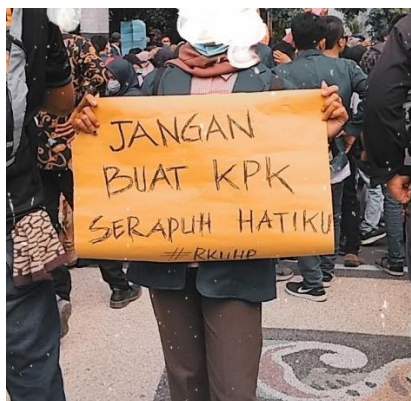 JANGAN
BUAT KPK
SERAPUH HATIKU
#RKUHP